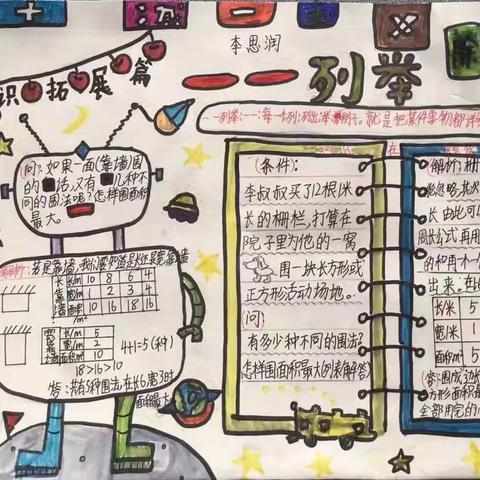 李思润
识拓展篇
一一列举
一一列举:一一:每一个列:列出举:举例子。就是把某件事物都详
问:如果一面(靠墙)围
的话,又有几种不
同的围法呢?怎样围面积
最大。
若是靠墙,我们要知道是长还是宽靠墙
长/m 10 8 6 4
宽/m 1 2 3 4
面积/m² 10 16 18 16
宽
靠
墙
长/m 5
宽/m 2
面积/m² 10
4+1=5(种)
18>16>10
答:共有5种围法,在长6,宽3时
面积最大
(条件):
李叔叔买了12根1米
长的栅栏,打算在
院子里为他的一窝
围一块长方形或
正方形活动场地。
(问)
有多少种不同的围法?
怎样围面积最大(列表解答)
(解析):栅
忽略,其次
长由此可以
周长公式再用
的和再才一
出来。
长/米 5
宽/米 1
面积/m² 5
答:围成边长
方形面积最
全部用完的